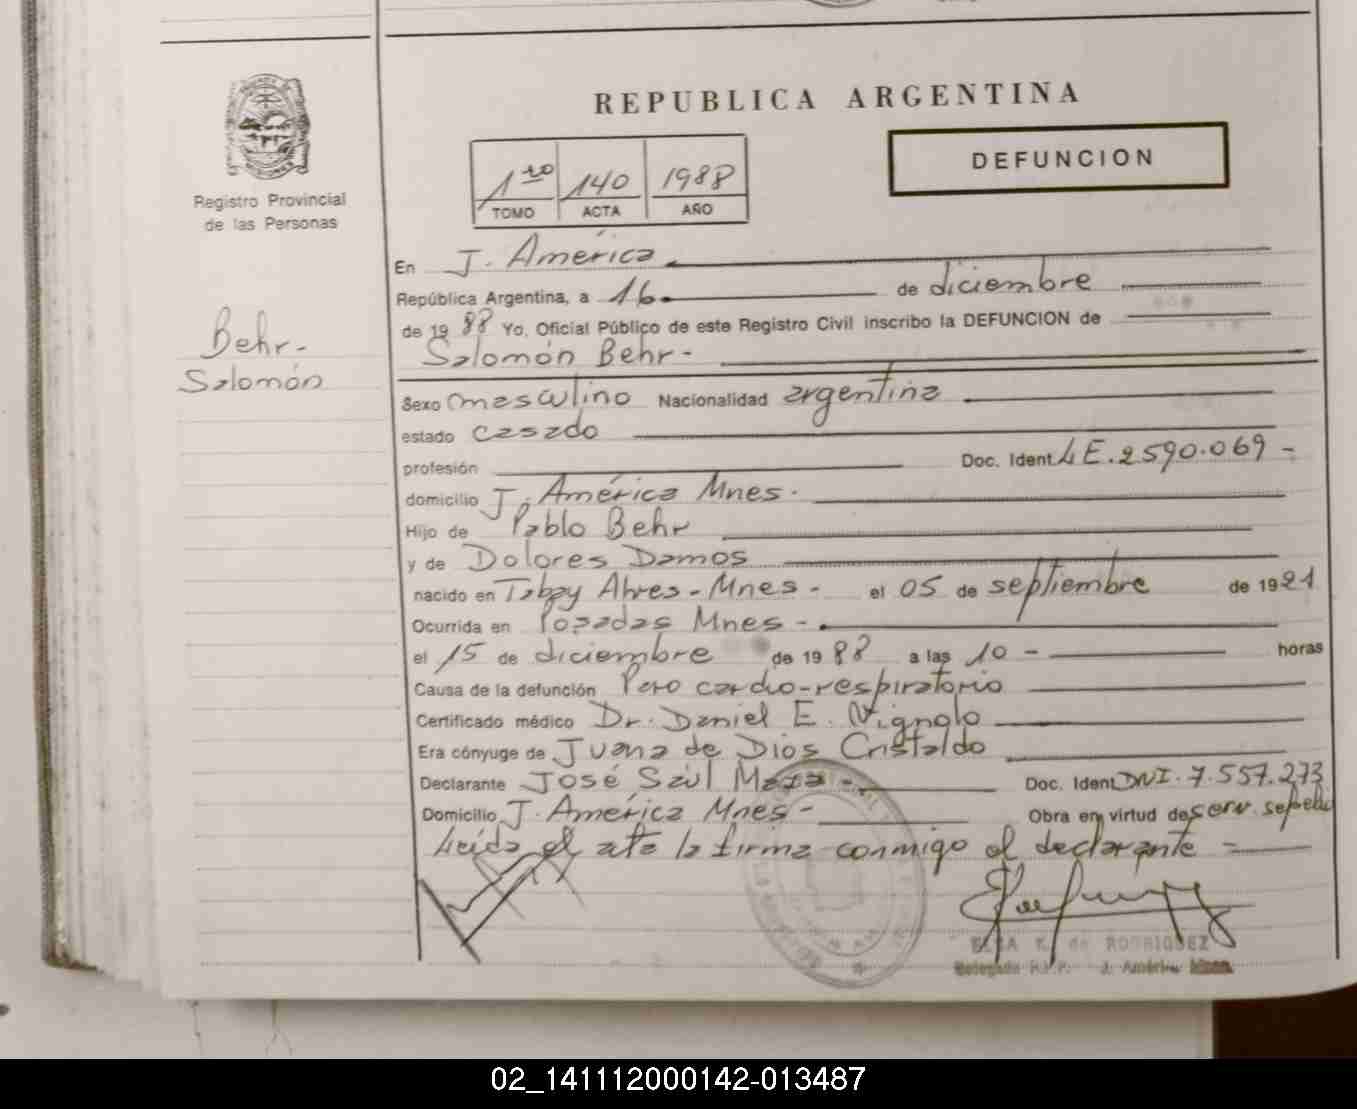 REPUBLICA ARGENTINA
DEFUNCION
1ro 140 1988
TOMO ACTA AÑO
Registro Provincial
de las Personas
Behr-
Salomón
En J. América.
República Argentina, a 16 de diciembre
de 1988 Yo, Oficial Público de este Registro Civil inscribo la DEFUNCION de
Salomón Behr-
Sexo masculino Nacionalidad argentina
estado casado
profesión Doc. Ident. LE.2590.069-
domicilio J. América Mnes.
Hijo de Pablo Behr
y de Dolores Damos
nacido en Tabay Alves-Mnes- el 05 de septiembre de 1921
Ocurrida en Posadas Mnes-
el 15 de diciembre de 1988 a las 10- horas
Causa de la defunción Paro cardio-respiratorio
Certificado médico Dr. Daniel E. Vignolo
Era cónyuge de Juana de Dios Cristaldo
Declarante José Saúl Doc. Ident DNI.7.557.273
Domicilio J. América Mnes- Obra en virtud de serv. sepelio
Leída el acta la firma conmigo el declarante-
ELSA K. de RODRIGUEZ
Delegada R.P.P. J. América Mnes.
02_141112000142-013487